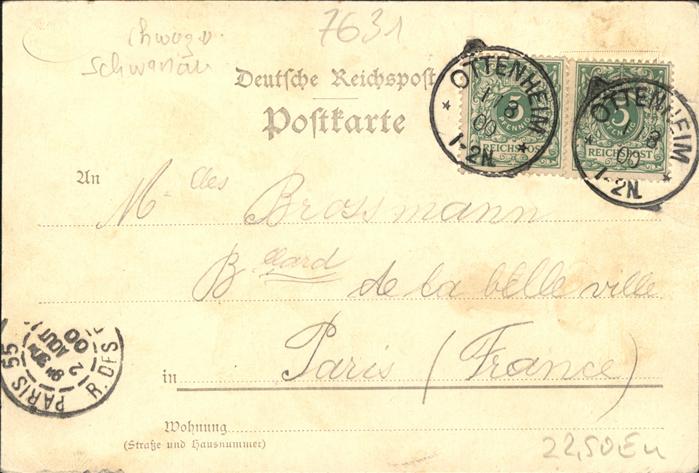 7631
Schwanau
Deutsche Reichspost
Postkarte
5
PFENNIG
REICHSPOST
5
PFENNIG
REICHSPOST
OTTENHEIM
1 8
00
1-2N.
OTTENHEIM
1 8
00
1-2N.
An
M des Brossmann
Bllard de la belle ville
in Paris (France)
PARIS 55
R. DES
2
AOUT
00
Wohnung
(Straße und Hausnummer)
22,50 Eu